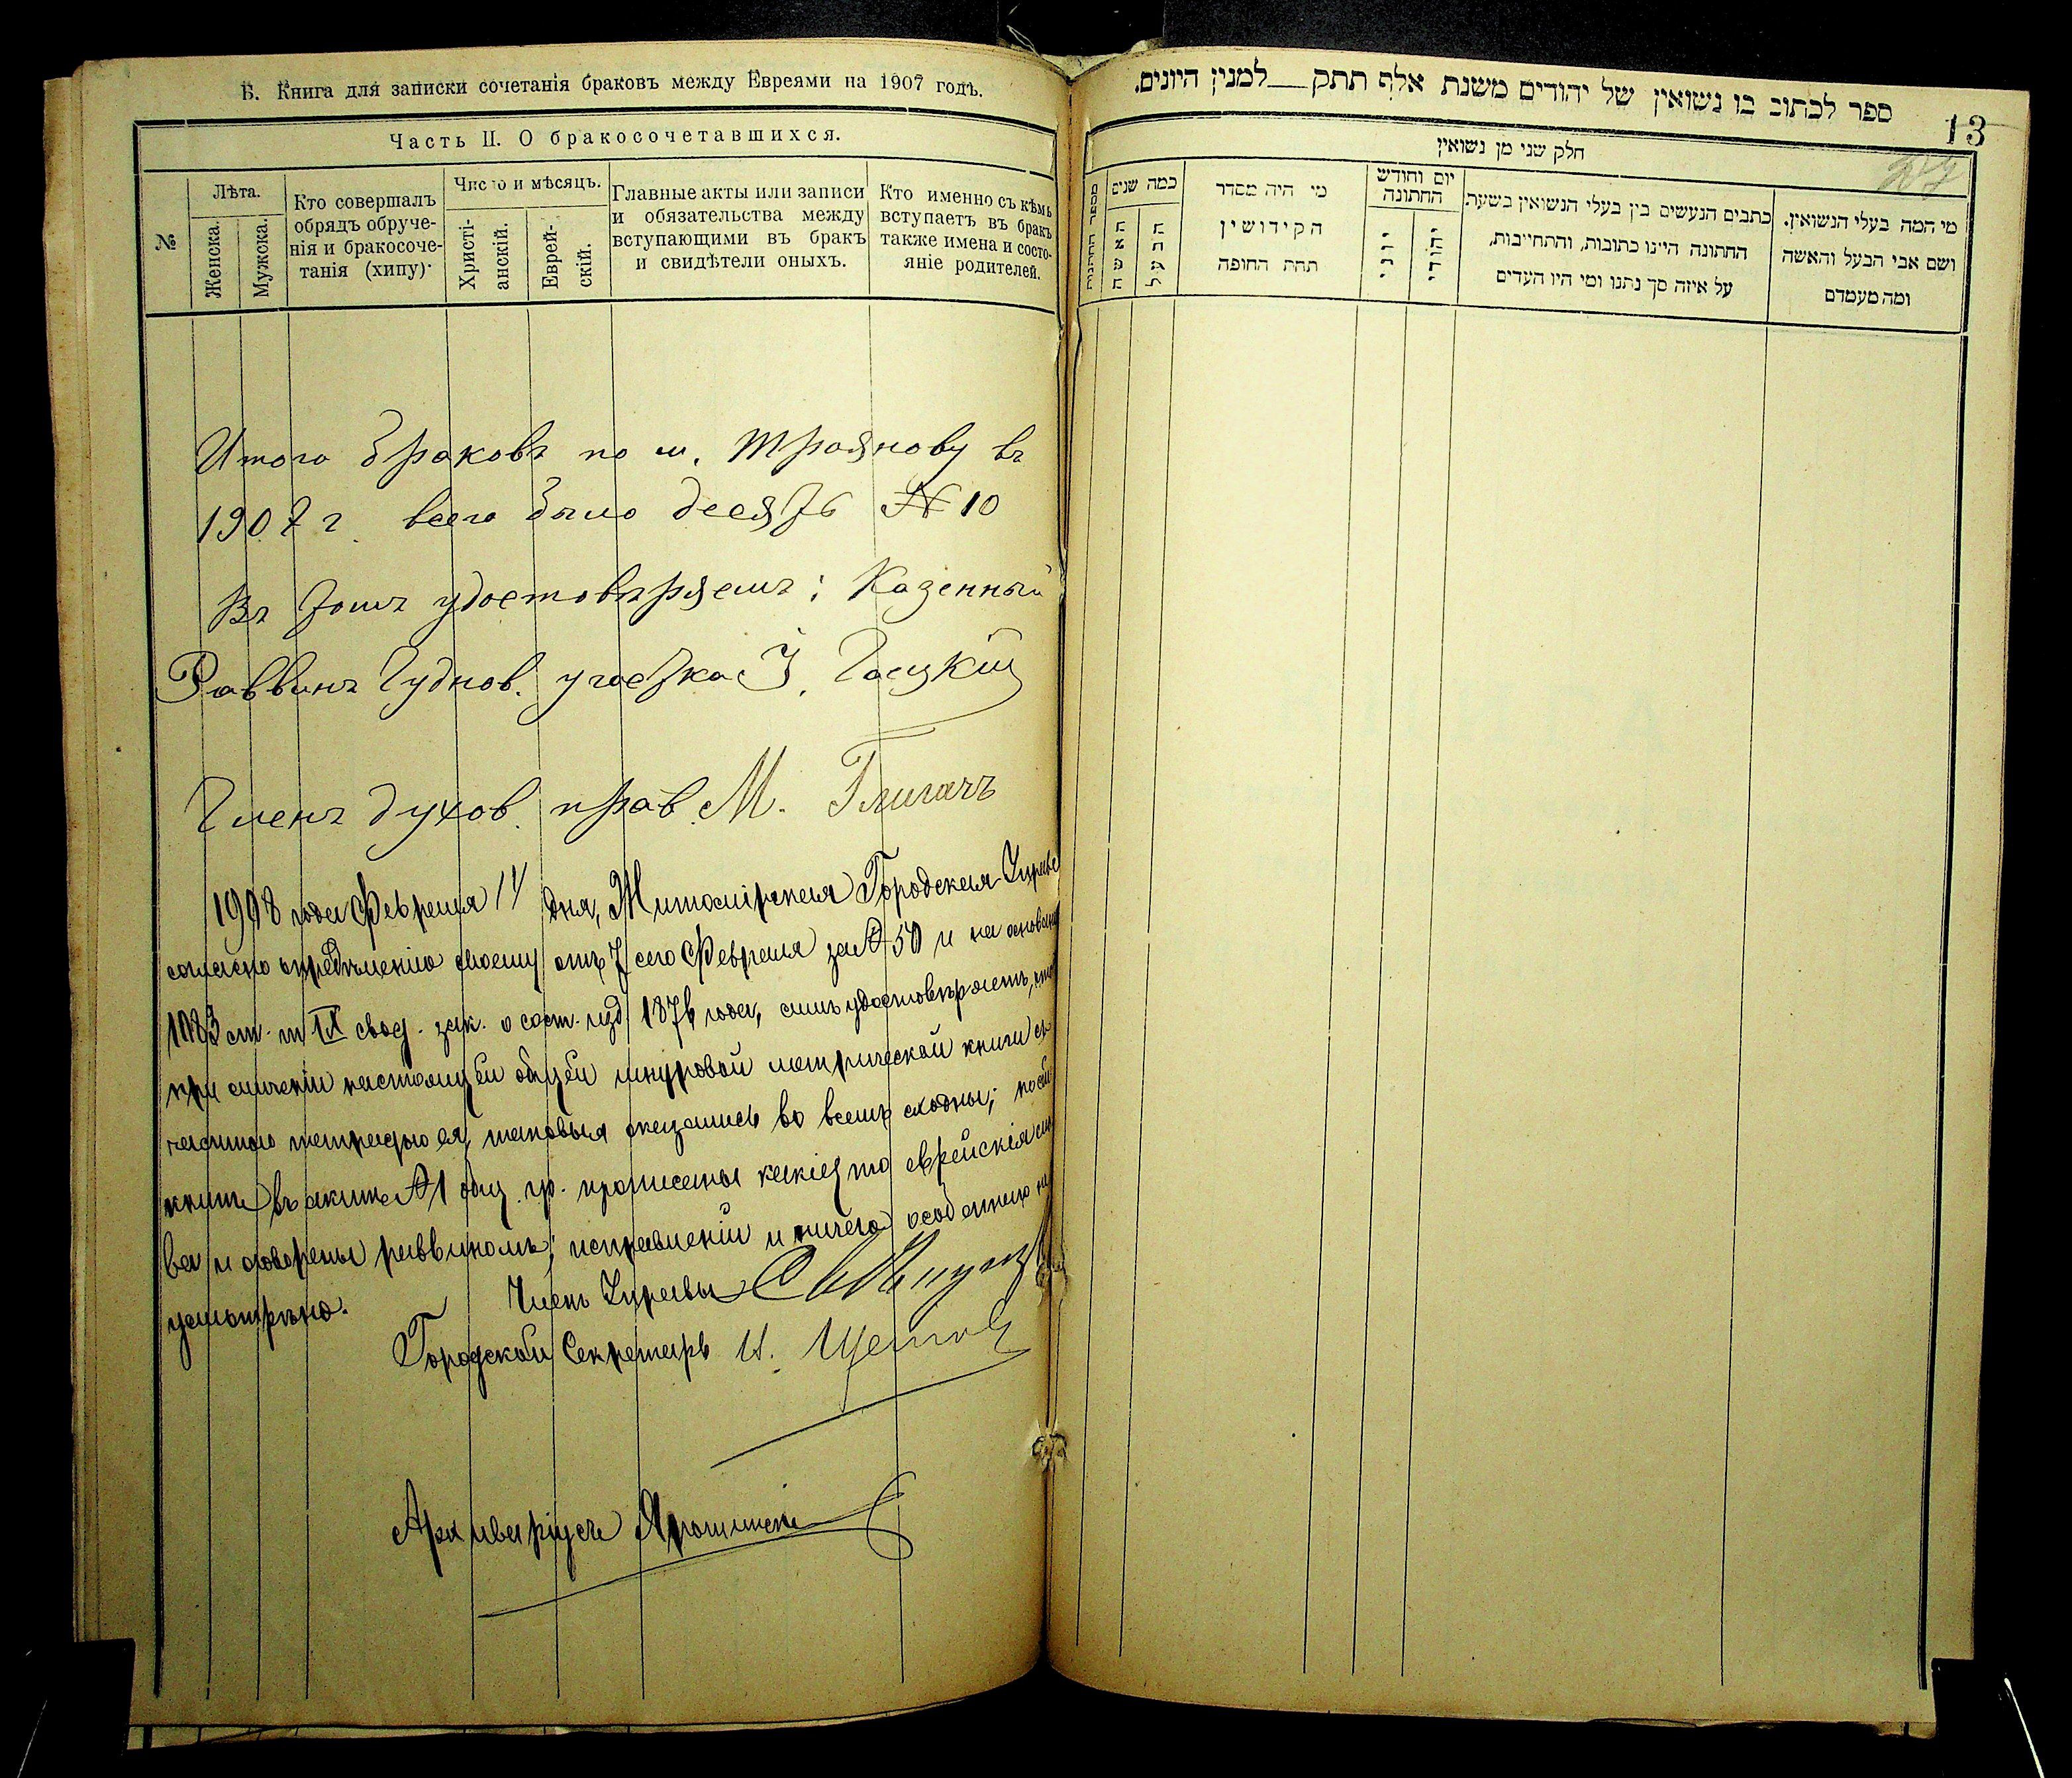 Б. Книга для записки сочетанія браковъ между Евреями на 1907 годъ.
Часть II. О бракосочетавшихся.
№
Лѣта.
Женска.
Мужска.
Кто совершалъ
обрядъ обруче-
нія и бракосоче-
танія (хипу).
Число и мѣсяцъ.
Христі-
анскій.
Еврей-
скій.
Главные акты или записи
и обязательства между
вступающими въ бракъ
и свидѣтели оныхъ.
Кто именно съ кѣмъ
вступаетъ въ бракъ
также имена и состо-
яніе родителей.
Итого браковъ по м. Троянову въ
1907 г. всего было десять № 10
Въ томъ удостовѣряемъ: Казенный
Раввинъ Чуднов. участка
Членъ духов. прав. М.
1908 года Февраля 14 дня, Житомірская Городская Управа
согласно опредѣленію своему отъ 7 сего Февраля за № 50 и на основаніи
1083 ст. т. IX свод. зак. о сост. изд. 1876 года, симъ удостовѣряетъ, что
при сличеніи настоящей общей шнуровой метрической книги съ
частною тетрадью ея, таковыя оказались во всемъ сходны; по сей
книгѣ въ актѣ № 1 общ. гр. прописаны какія то еврейскія сло
ва и оговорены раввиномъ; исправленій и ничего особеннаго не
усмотрѣно.
Членъ Управы
Городской Секретарь И.
Архиваріусъ
ספר לכתוב בו נשואין של יהודים משנת אלף תתק למנין היונים.
13
חלק שני מן נשואין
מספר החתנות
כמה שנים
האשה
הבעל
מי היה מסדר
הקידושין
תחת החופה
יום וחודש
החתונה
יוני
יהודי
כתבים הנעשים בין בעלי הנשואין בשעת
החתונה היינו כתובות, והתחייבות,
על איזה סך נתנו ומי היו העדים
מי המה בעלי הנשואין.
ושם אבי הבעל והאשה
ומה מעמדם